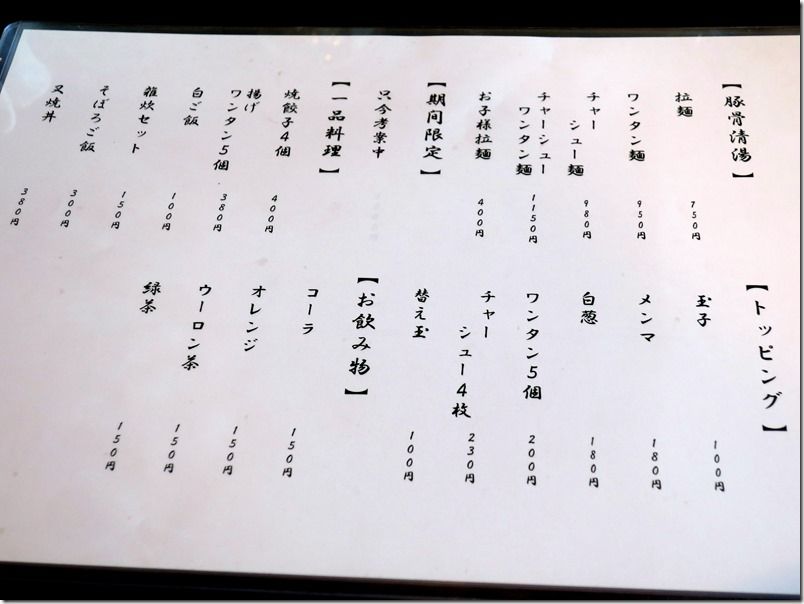 【豚骨清湯】
拉麺
750円
ワンタン麺
950円
チャー
シュー麺
980円
チャーシュー
ワンタン麺
1150円
お子様拉麺
400円
【期間限定】
只今考案中
【一品料理】
焼餃子4個
400円
揚げ
ワンタン5個
380円
白ご飯
100円
雑炊セット
150円
そぼろご飯
300円
叉焼丼
380円
【トッピング】
玉子
100円
メンマ
180円
白葱
180円
ワンタン5個
200円
チャー
シュー4枚
230円
替え玉
100円
【お飲み物】
コーラ
150円
オレンジ
150円
ウーロン茶
150円
緑茶
150円